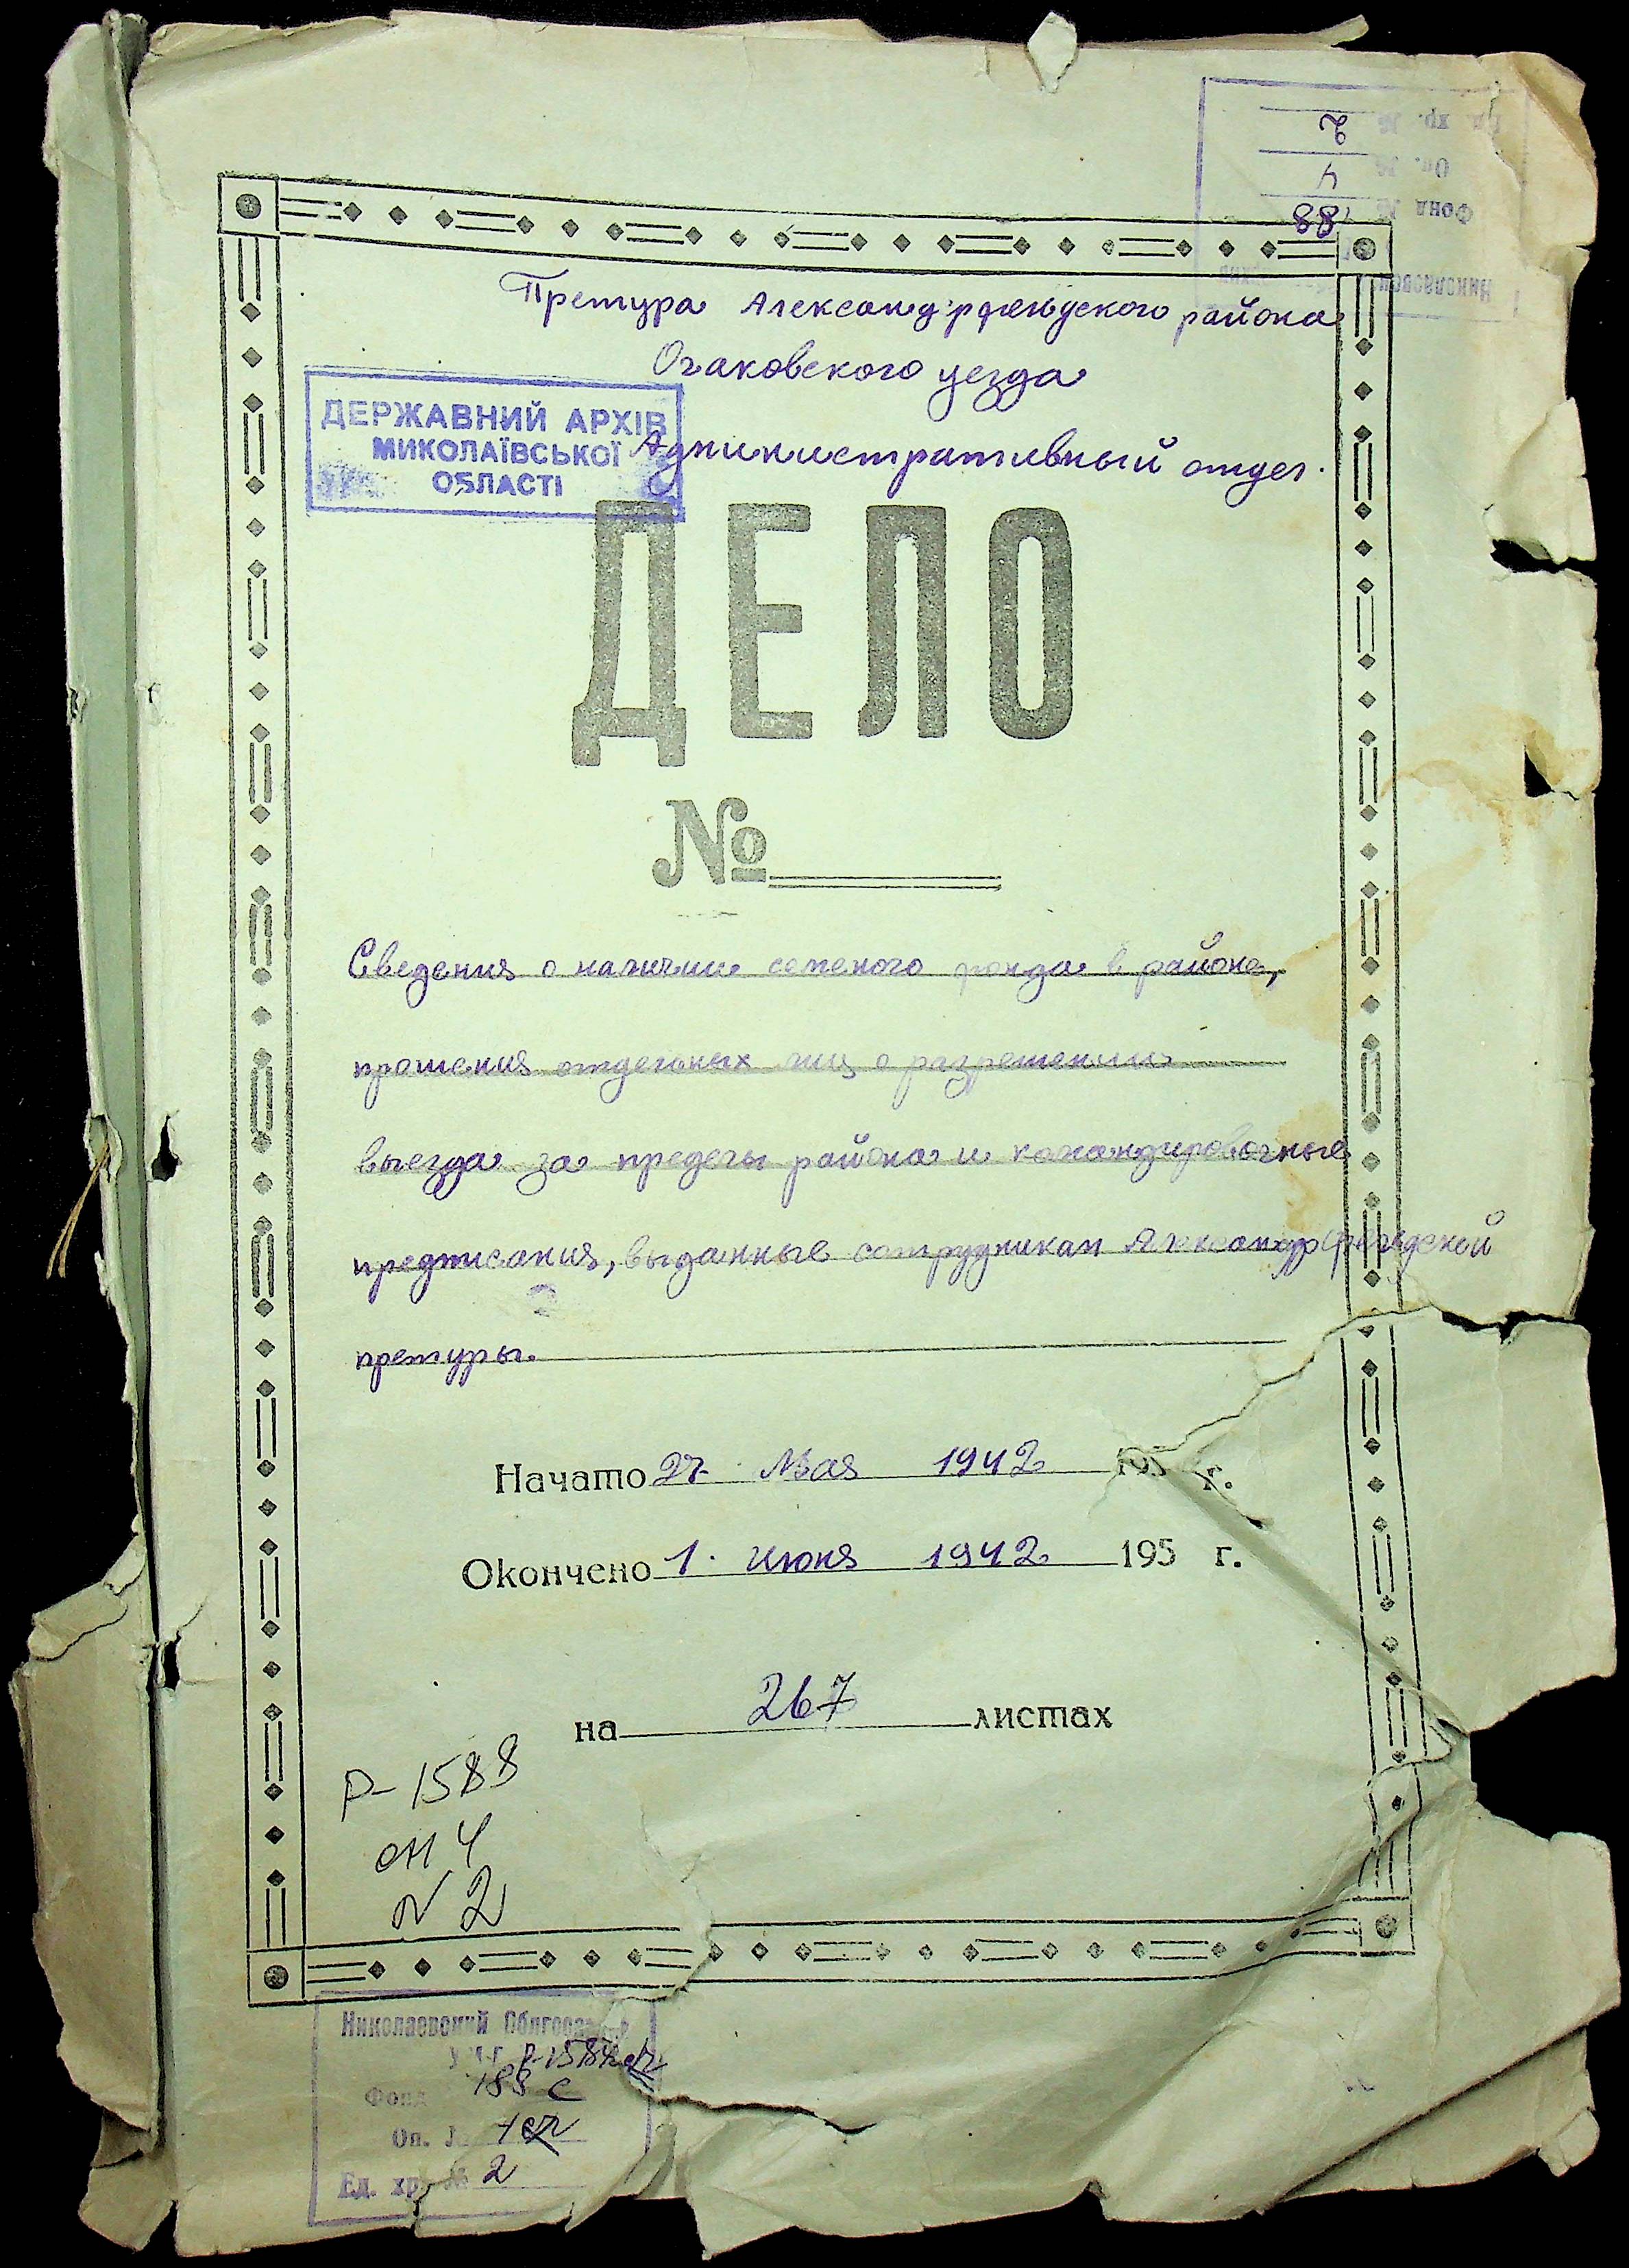 Ед. хр. № 2
Оп. № 4
Фонд № 188
Претура Александрфельдского района
Очаковского уезда
ДЕРЖАВНИЙ АРХІВ
МИКОЛАЇВСЬКОЇ
ОБЛАСТІ
Административный отдел.
ДЕЛО
№
Сведения о наличии семеного фонда в районе,
прошения отдельных лиц о разрешении
выезда за пределы района и командировочные
предписания, выданные сотрудникам Александрфельдской
претуры.
Начато 27 Мая 1942 195 г.
Окончено 1. июня 1942 195 г.
на 267 листах
Р-1588
оп 4
N 2
Николаевский Облгосархив
Фонд 188 с
Оп.
Ед. хр. № 2